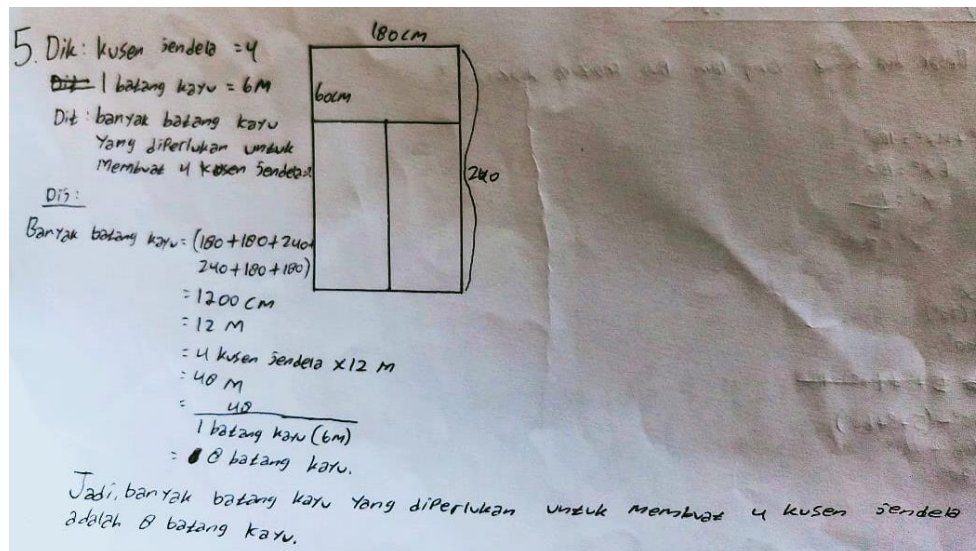 180cm
5. Dik: kusen jendela = 4
1 batang kayu = 6M
60cm
Dit: banyak batang kayu
Yang diperlukan untuk
Membuat 4 kusen jendela
240
Dij:
Banyak batang kayu = (180+180+240+
240+180+180)
= 1200 cm
= 12 M
= 4 kusen jendela x 12 m
= 48 M
= 48
1 batang kayu (6m)
= 8 batang kayu.
Jadi, banyak batang kayu yang diperlukan untuk membuat 4 kusen jendela
adalah 8 batang kayu.